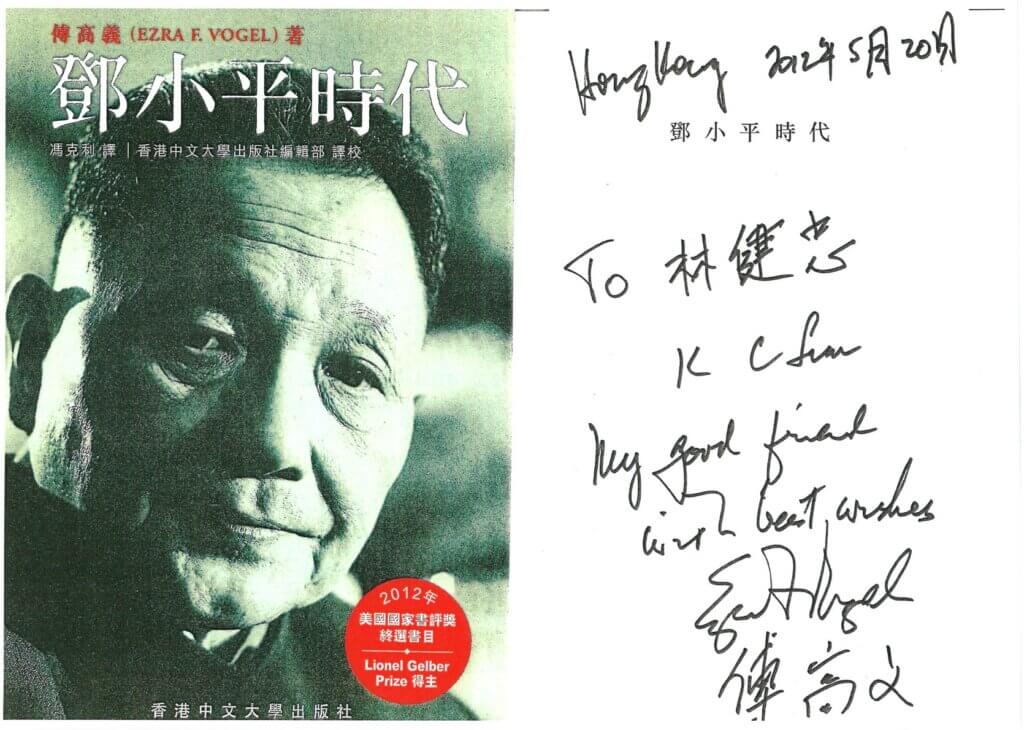 傅高義 (EZRA F. VOGEL) 著
鄧小平時代
馮克利 譯 | 香港中文大學出版社編輯部 譯校
2012年
美國國家書評獎
終選書目
Lionel Gelber
Prize 得主
香港中文大學出版社
Hong Kong 2012年5月20日
鄧小平時代
To 林健忠
K C
My good friend
with best wishes
Ezra F Vogel
傅高义